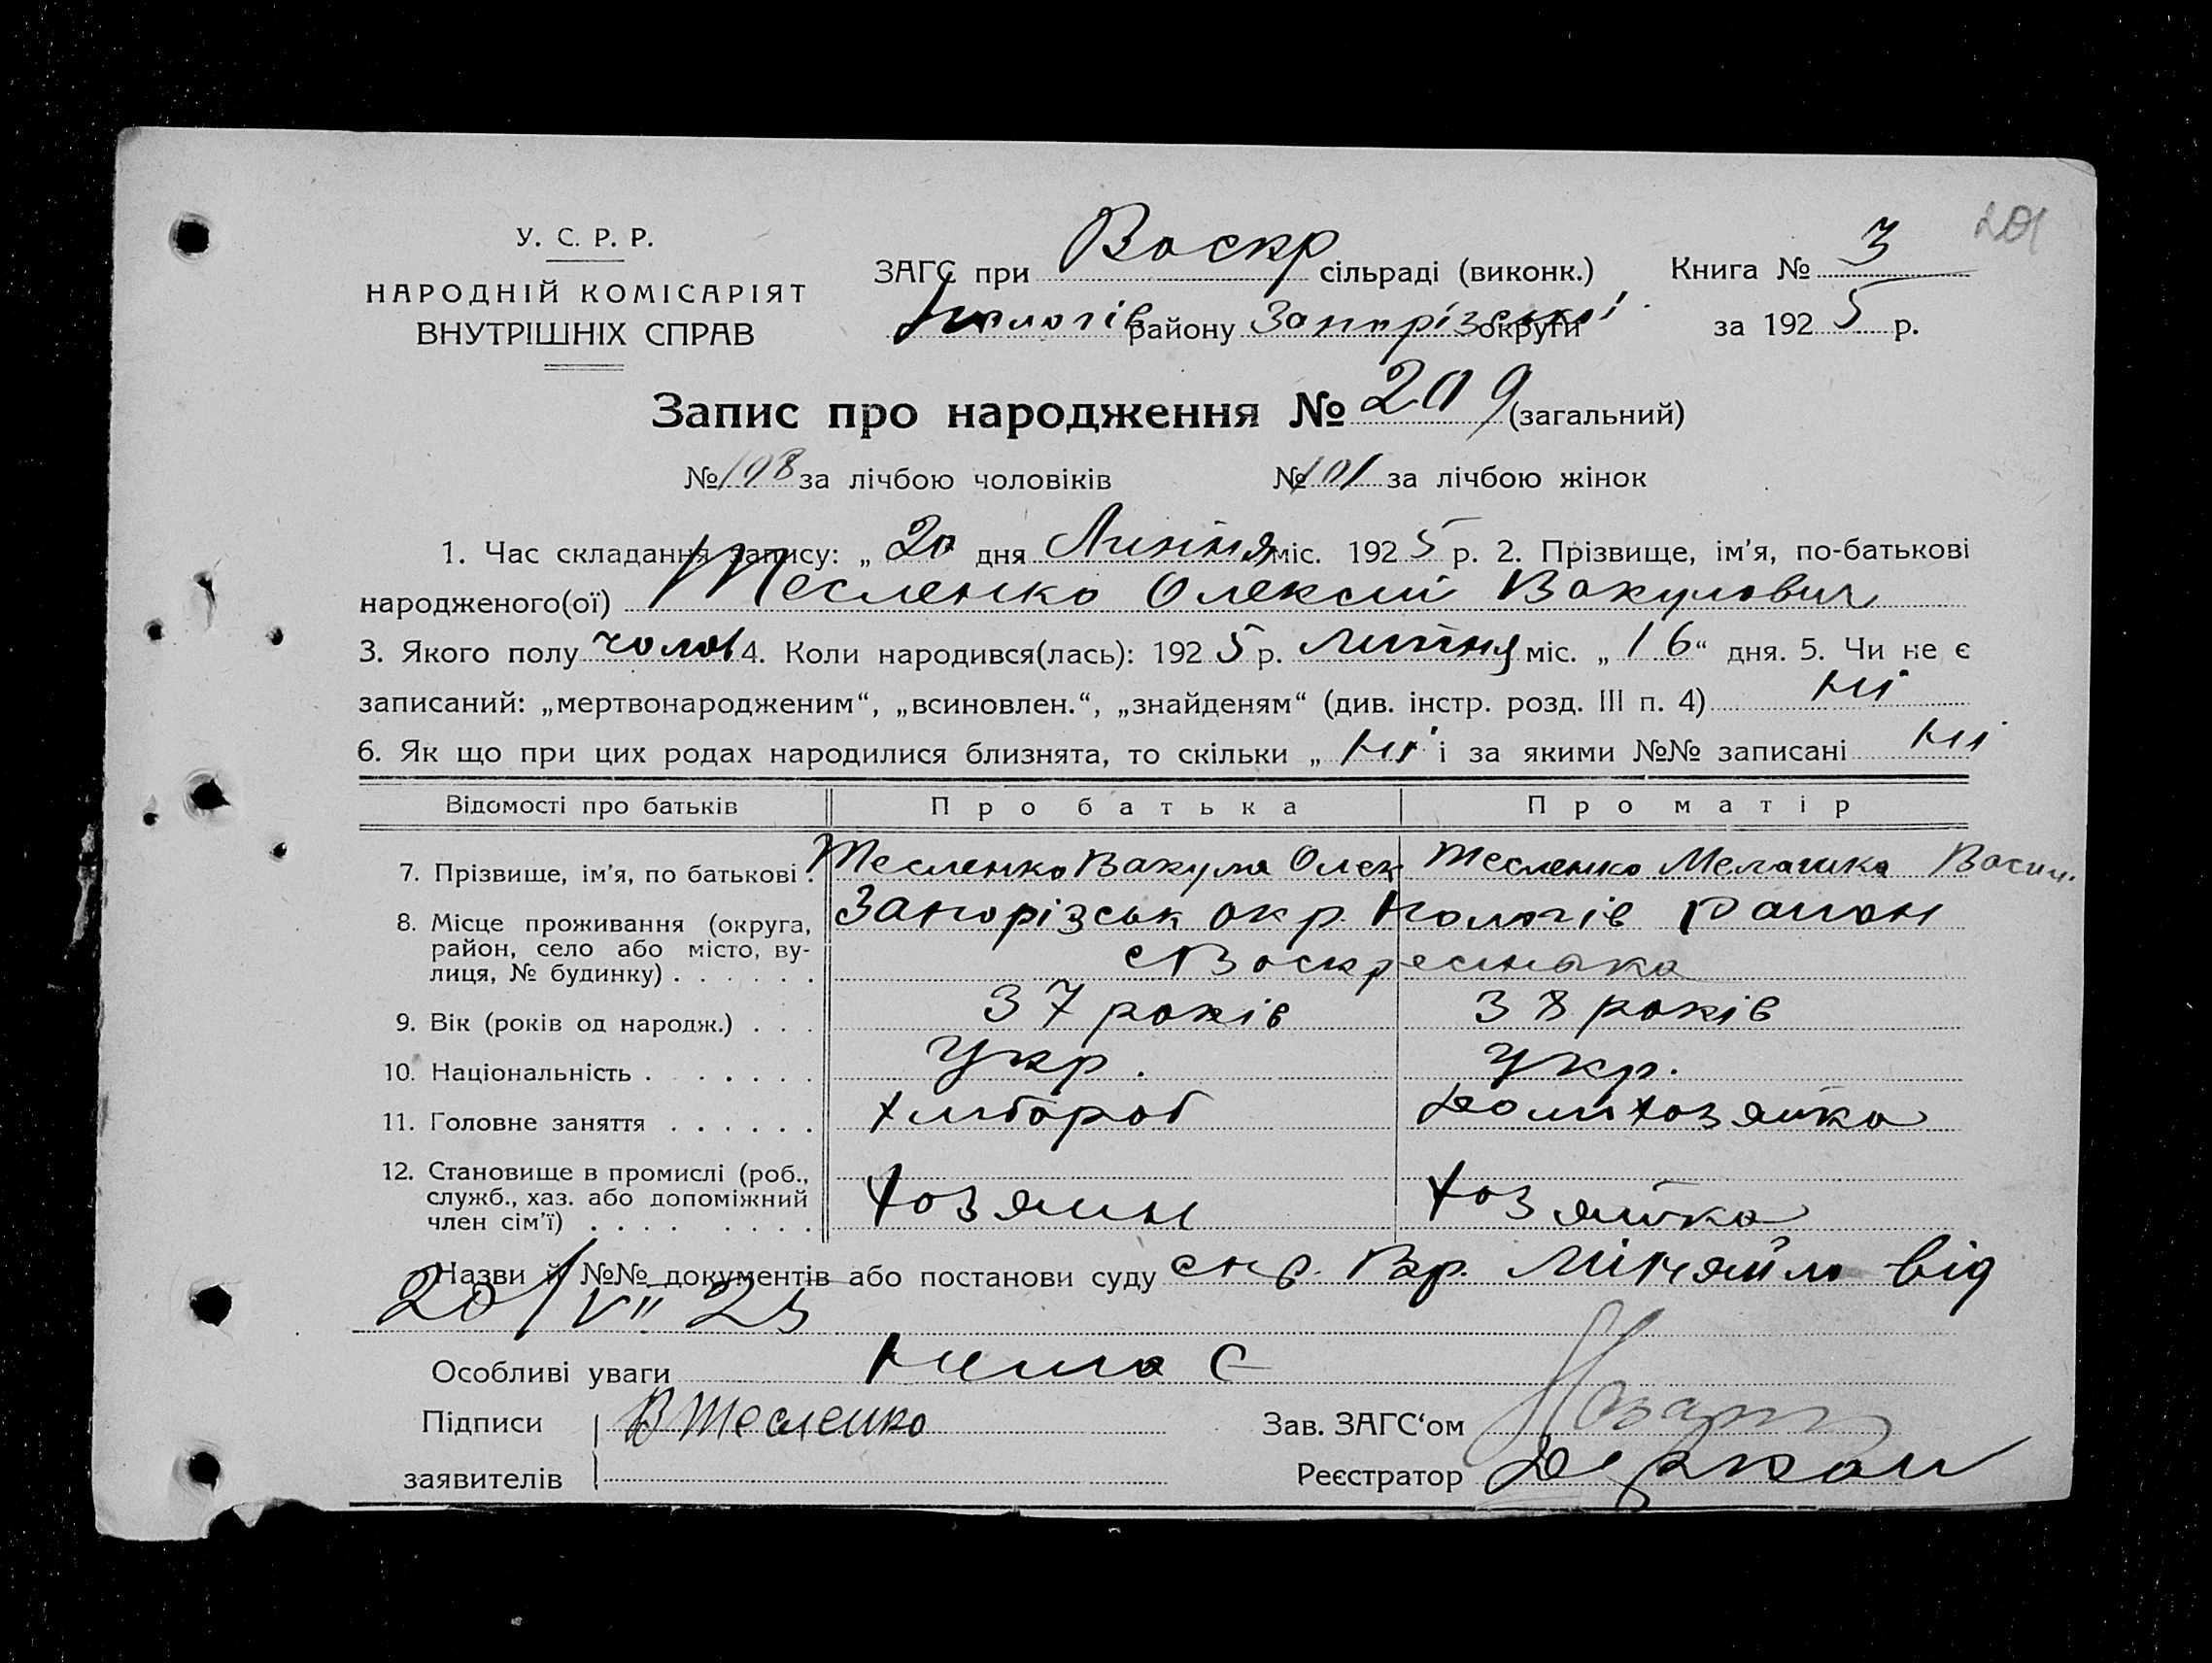 201
У. С. Р. Р.
НАРОДНІЙ КОМІСАРІЯТ
ВНУТРІШНІХ СПРАВ
ЗАГС при Воскр сільраді (виконк.) Книга № 3
району Запорізської округи за 1925 р.
Запис про народження № 209 (загальний)
№ 108 за лічбою чоловіків № 101 за лічбою жінок
1. Час складання запису: „ 20 дня Липня міс. 1925 р. 2. Прізвище, ім'я, по-батькові
народженого(ої) Тесленко Олексій Вакулович
3. Якого полу чолов 4. Коли народився(лась): 1925 р. липня міс. „ 16 “ дня. 5. Чи не є
записаний: „мертвонародженим“, „всиновлен.“, „знайденям“ (див. інстр. розд. III п. 4) ні
6. Як що при цих родах народилися близнята, то скільки „ ні і за якими №№ записані ні
Відомості про батьків Про батька Про матір
7. Прізвище, ім'я, по батькові . Тесленко Вакула Олек Тесленко Мелашка Васил.
8. Місце проживання (округа, район, село або місто, вулиця, № будинку) . . . . . . Запорізськ окр. Пологів район
с Воскресенька
9. Вік (років од народж.) . . . 37 років 38 років
10. Національність . . . . . . . Укр. Укр.
11. Головне заняття . . . . . . Хлібороб домхозяйка
12. Становище в промислі (роб., служб., хаз. або допоміжний член сім'ї) . . . . . . . . Хозяин Хозяйка
Назви й №№ документів або постанови суду від
20/VII 25
Особливі уваги Нема є
Підписи В Тесленко Зав. ЗАГС‘ом
заявителів Реєстратор